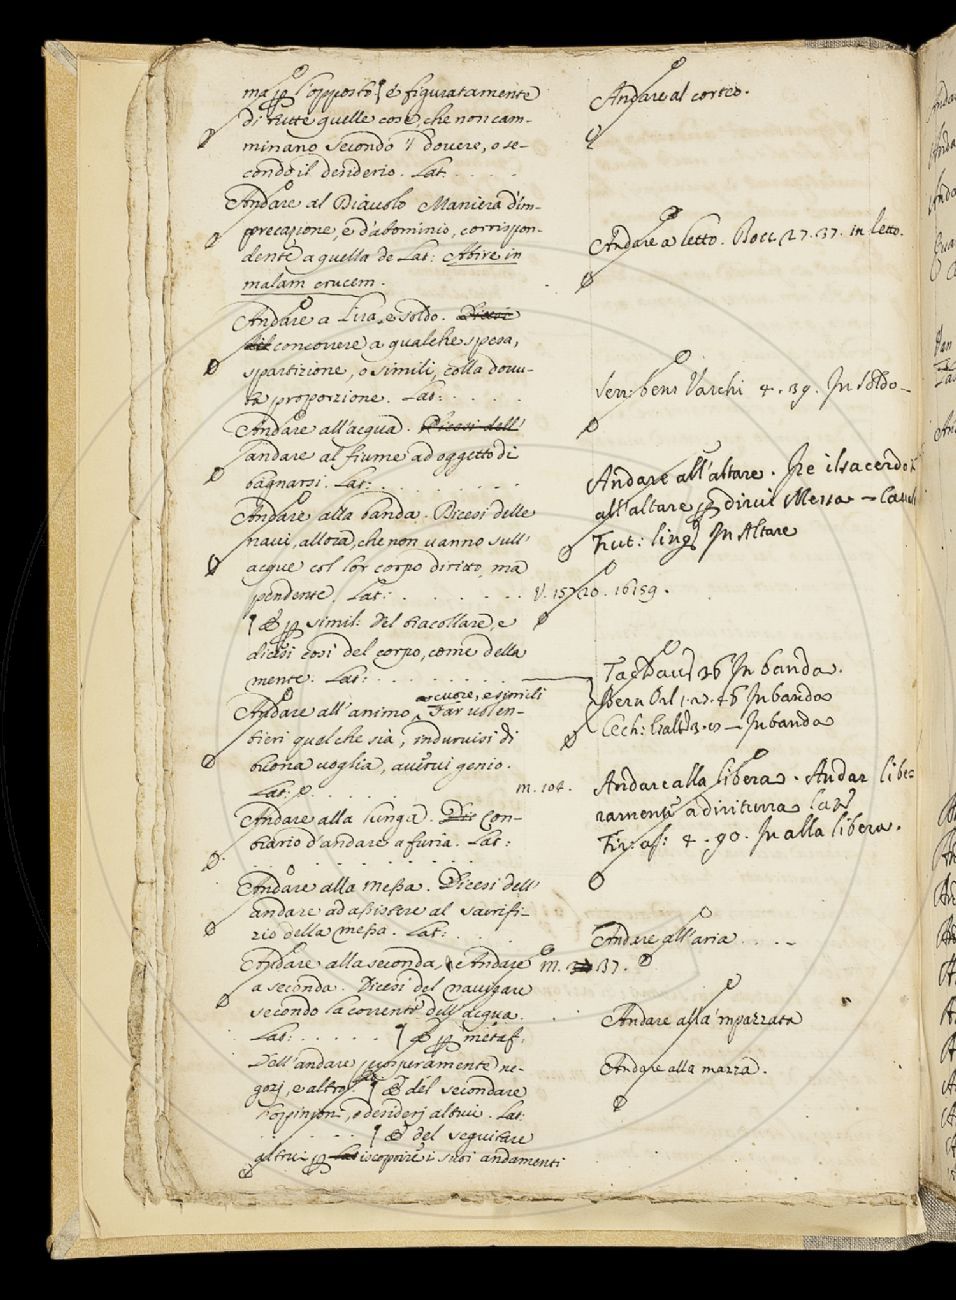 ma ꝑ l'opposto ¶ é figuratamente
di tutte quelle cose, che non cam-
minano secondo 'l dovere, o se-
condo il desiderio. Lat. . . . .
Andare al Diavolo Maniera d'im-
precazione, e d'abominio, corrispon-
dente a quella de Lat: Abire in
malam crucem.
Andare a Lira, e soldo. Dicesi
del concorrere a qualche spesa,
spartizione, o simili, colla dovu-
ta proporzione. Lat: . . . . .
Andare all'acqua. Dicesi dell'
andare al fiume ad oggetto di
bagnarsi. Lat: . . . . . . . .
Andare alla banda. Dicesi delle
navi, allora, che non vanno sull'
acque col lor corpo diritto, ma
pendente. Lat: . . . . . . .
¶ & ꝑ simil: del barcollare, e
dicesi cosi del corpo, come della
mente. Lat: . . . . . . . . .
cuore, e simili
Andare all'animo, Far volen-
tieri qualche sia, indurvisi di
buona voglia, avervi genio.
Lat: . . . . . .
Andare alla lunga. Dic Con-
trario d'andare a furia. Lat:
. . . . . . . . . . .
Andare alla Messa. Dicesi dell'
andare ad assistere al sacrifi-
zio della messa. Lat: . . . .
Andare alla seconda, e Andare
a seconda. Dicesi del navigare
secondo la corrente dell'acqua.
Lat: . . . . . ¶ & ꝑ metaf:
Dell'andare prosperamente ne-
gozj, e altro. ¶ & del secondare
l'oppinioni, o desiderj altrui. Lat:
. . . . . . ¶ & del seguitare
altrui ꝑ iscoprire i suoi andamenti
Andare al corteo.
Andare a letto. Bocc. 27. 37. in letto.
Sen: ben: Varchi 4. 39. In Soldo
Andare all'altare. Ire il sacerdote
all'altare ꝑ dirvi Messa
Frut: ling. In Altare
V. 15720. 16159.
Tac. Dav. 36 In banda.
Bern Orl. 1. 2. 46 In banda
Cech: In banda
m. 104.
Andare alla libera. Andar libe-
ramente a dirittura
Fir. as: 4. 90. In alla libera.
Andare all'aria . . . .
m. 37.
Andare alla 'mpazzata
Andare alla mazza.